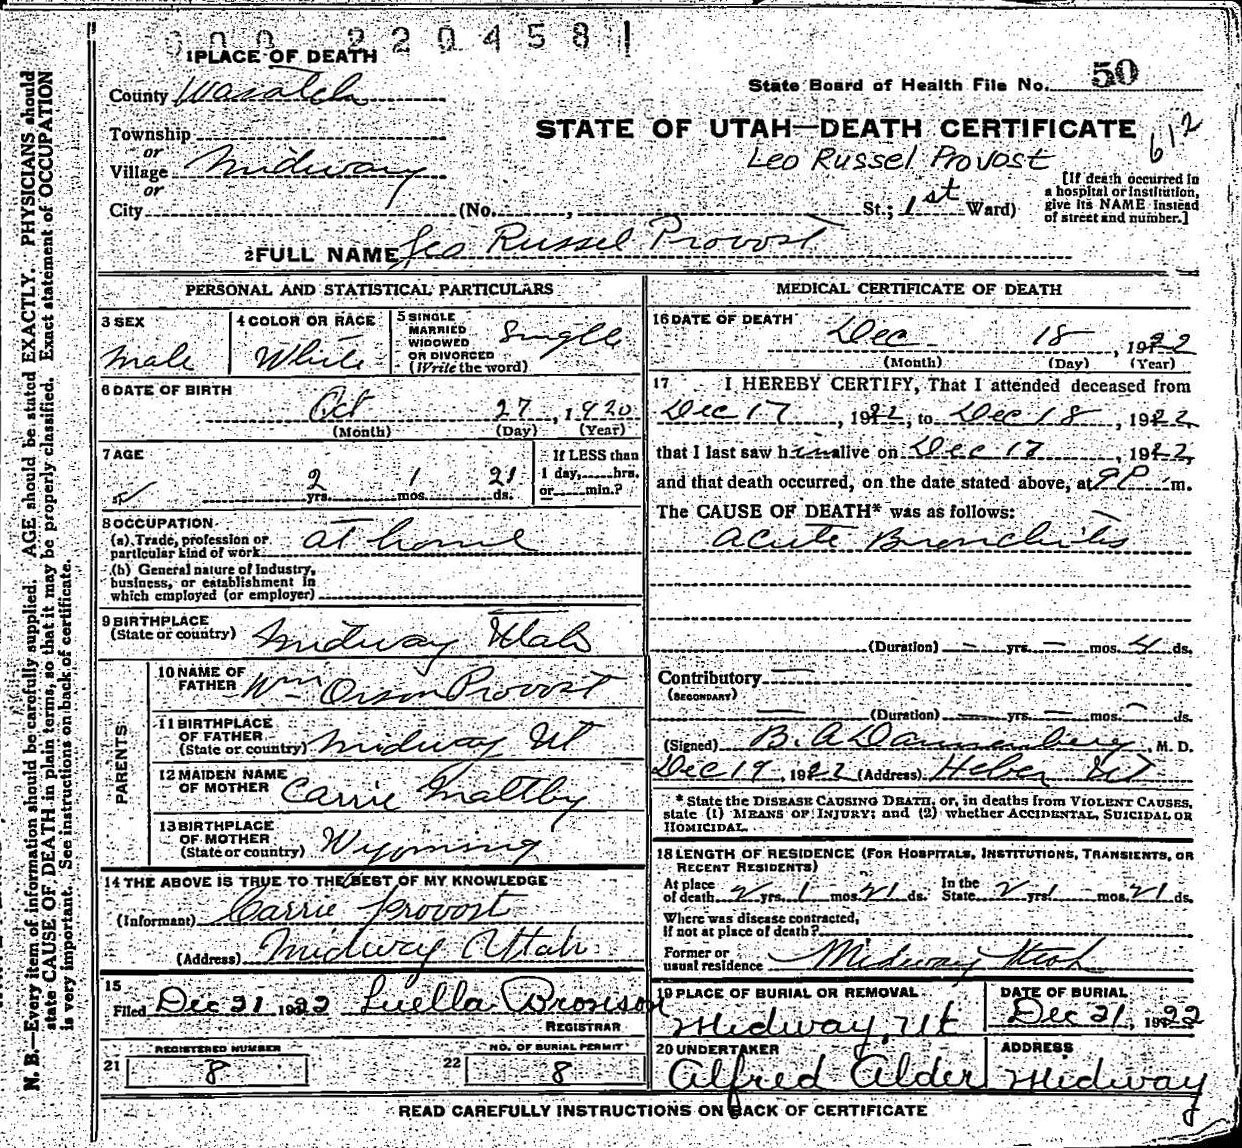 000 220458
1 PLACE OF DEATH
County Wasatch
State Board of Health File No. 50
Township
or
Village Midway
or
City (No. , St.; 1st Ward)
STATE OF UTAH—DEATH CERTIFICATE
Leo Russel Provost
612
[If death occurred in
a hospital or institution,
give its NAME instead
of street and number.]
2 FULL NAME Leo Russel Provost
PERSONAL AND STATISTICAL PARTICULARS
3 SEX
Male
4 COLOR OR RACE
White
5 SINGLE
MARRIED
WIDOWED
OR DIVORCED
(Write the word)
Single
6 DATE OF BIRTH
Oct 27, 1920
(Month) (Day) (Year)
7 AGE
2 yrs. 1 mos. 21 ds.
If LESS than
1 day, hrs.
or min.?
8 OCCUPATION
(a) Trade, profession or
particular kind of work at home
(b) General nature of industry,
business, or establishment in
which employed (or employer)
9 BIRTHPLACE
(State or country) Midway Utah
PARENTS
10 NAME OF
FATHER Wm Orson Provost
11 BIRTHPLACE
OF FATHER
(State or country) Midway Ut
12 MAIDEN NAME
OF MOTHER Carrie Maltby
13 BIRTHPLACE
OF MOTHER
(State or country) Wyoming
14 THE ABOVE IS TRUE TO THE BEST OF MY KNOWLEDGE
(Informant) Carrie Provost
(Address) Midway Utah
15
Filed Dec 21 1922 Luella Bronson
REGISTRAR
REGISTERED NUMBER
21 8
NO. OF BURIAL PERMIT
22 8
MEDICAL CERTIFICATE OF DEATH
16 DATE OF DEATH
Dec 18, 1922
(Month) (Day) (Year)
17 I HEREBY CERTIFY, That I attended deceased from
Dec 17, 1922, to Dec 18, 1922,
that I last saw him alive on Dec 17, 1922,
and that death occurred, on the date stated above, at 9P m.
The CAUSE OF DEATH* was as follows:
Acute Bronchitis
(Duration) — yrs. — mos. 4 ds.
Contributory —
(SECONDARY)
— (Duration) — yrs. — mos. — ds.
(Signed) B. A Dannenberg, M. D.
Dec 19, 1922 (Address) Heber Ut
* State the DISEASE CAUSING DEATH, or, in deaths from VIOLENT CAUSES,
state (1) MEANS OF INJURY; and (2) whether ACCIDENTAL, SUICIDAL OR
HOMICIDAL.
18 LENGTH OF RESIDENCE (FOR HOSPITALS, INSTITUTIONS, TRANSIENTS, OR
RECENT RESIDENTS)
At place
of death 2 yrs. 1 mos. 21 ds. In the
State 2 yrs. 1 mos. 21 ds.
Where was disease contracted,
if not at place of death?
Former or
usual residence Midway Utah
19 PLACE OF BURIAL OR REMOVAL
Midway, Ut
DATE OF BURIAL
Dec 21, 1922
20 UNDERTAKER
Alfred Alder
ADDRESS
Midway
READ CAREFULLY INSTRUCTIONS ON BACK OF CERTIFICATE
N. B.—Every item of information should be carefully supplied. AGE should be stated EXACTLY. PHYSICIANS should
state CAUSE OF DEATH in plain terms, so that it may be properly classified. Exact statement of OCCUPATION
is very important. See instructions on back of certificate.